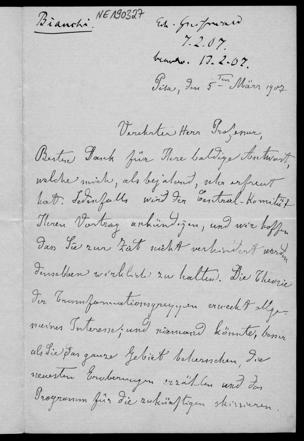 Bianchi. NE190327
7.2.07.
13.2.07.
Pisa, den 5ten März 1907
Verehrter Herr Professor,
Besten Dank für Ihre baldige Antwort,
welche mich, als bejahend, sehr erfreut
hat. Jedenfalls wird der Central-Komität
Ihren Vortrag ankündigen, und wir hoffen
dass Sie zur Zeit nicht verhindert werden
denselben wirklich zu halten. Die Theorie
der Transformationsgruppen erweckt allge-
meines Interesse; und niemand könnte, besser
als Sie das ganze Gebiet beherrschen, die
neuesten Eroberungen erzählen und das
Programm für die zukünftigen skizzieren.